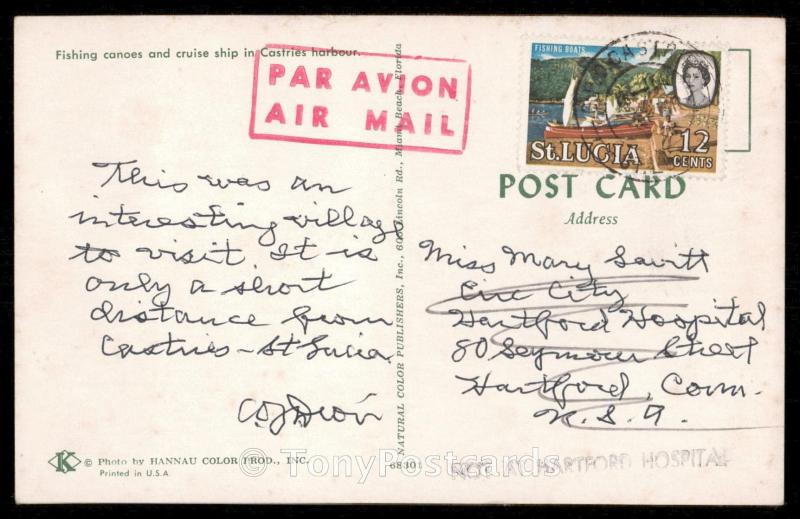 Fishing canoes and cruise ship in Castries harbour.
PAR AVION
AIR MAIL
This was an
interesting village
to visit. It is
only a short
distance from
Castries - St Lucia
© Photo by HANNAU COLOR PROD., INC.
Printed in U.S.A
K
NATURAL COLOR PUBLISHERS, Inc., Lincoln Rd., Miami Beach, Florida
68301
FISHING BOATS
St. LUCIA
12
CENTS
POST CARD
Address
Miss Mary Savitt
City
Hartford Hospital
80 Seymour Street
Hartford, Conn.
U.S.A.
NOT AT HARTFORD HOSPITAL
© TonyPostcards